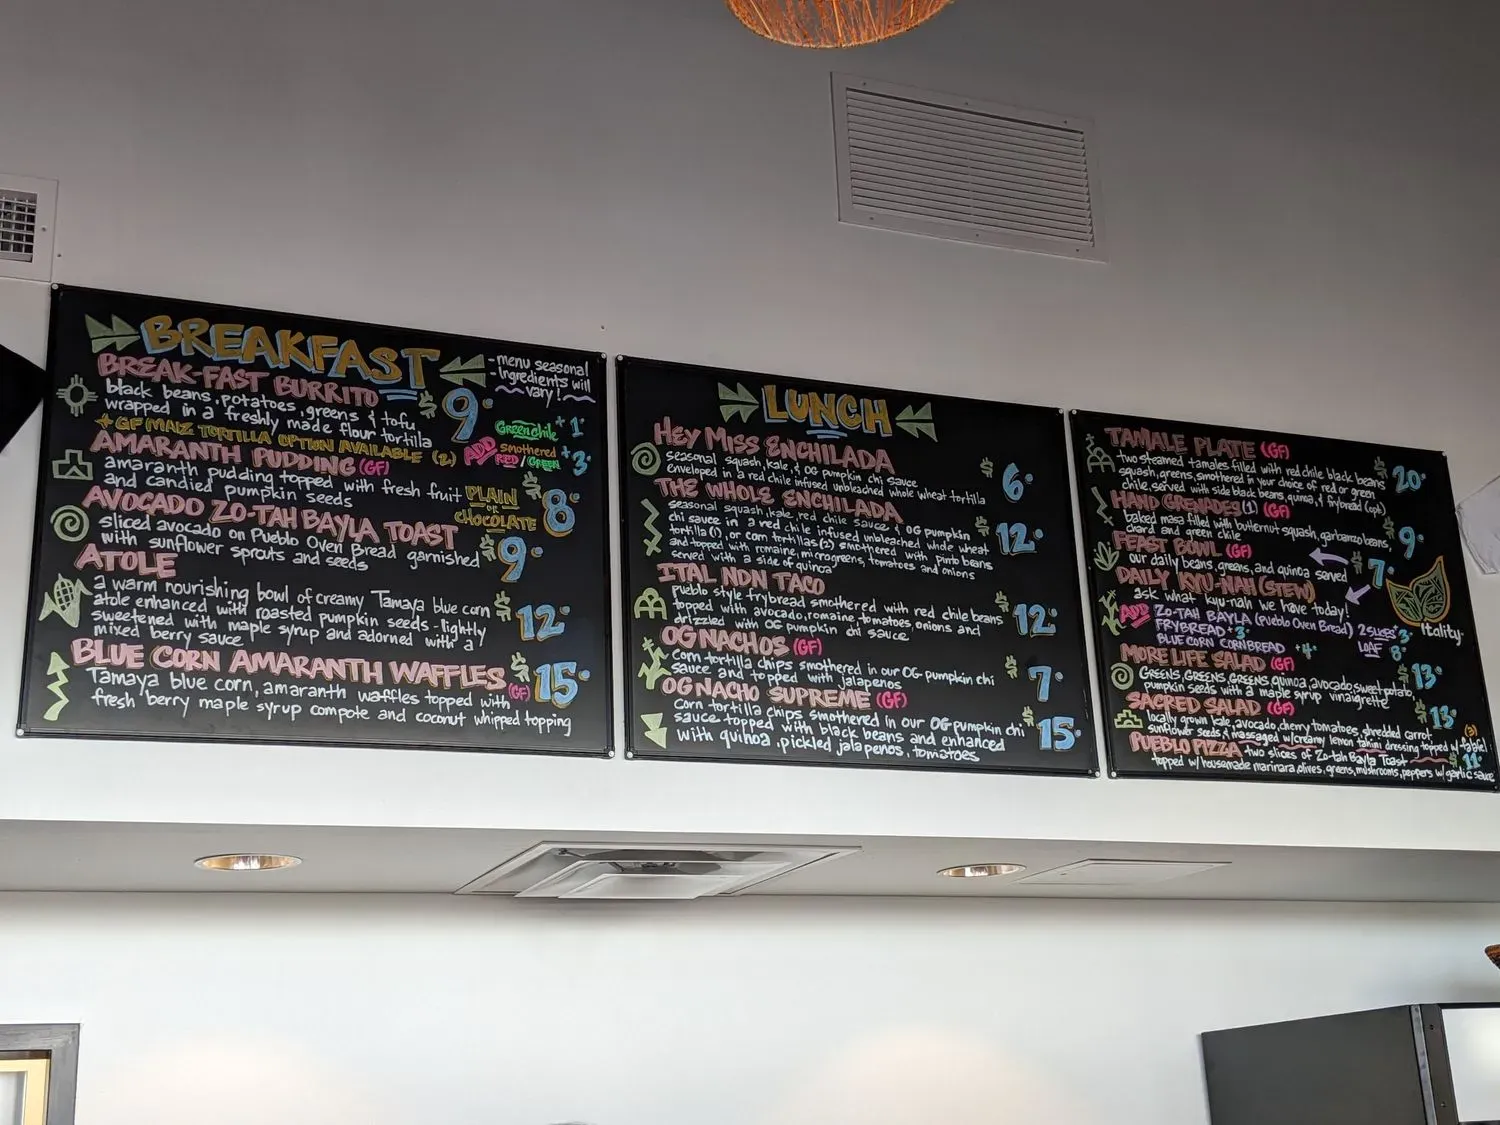 BREAKFAST
- menu seasonal
- Ingredients will
vary!
BREAK-FAST BURRITO
black beans, potatoes, greens & tofu
wrapped in a freshly made flour tortilla
$9.
Green chile +1.
+GF MAIZ TORTILLA OPTION AVAILABLE (2)
ADD smothered RED/GREEN +3.
AMARANTH PUDDING (GF)
amaranth pudding topped with fresh fruit
and candied pumpkin seeds
PLAIN
or
CHOCOLATE
$8.
AVOCADO ZO-TAH BAYLA TOAST
sliced avocado on Pueblo Oven Bread garnished
with sunflower sprouts and seeds
$9.
ATOLE
a warm nourishing bowl of creamy Tamaya blue corn
atole enhanced with roasted pumpkin seeds - lightly
sweetened with maple syrup and adorned with a
mixed berry sauce
$12.
BLUE CORN AMARANTH WAFFLES (GF)
Tamaya blue corn, amaranth waffles topped with
fresh berry maple syrup compote and coconut whipped topping
$15.
LUNCH
HEY MISS ENCHILADA
seasonal squash, kale, & OG pumpkin chi sauce
enveloped in a red chile infused unbleached whole wheat tortilla
$6.
THE WHOLE ENCHILADA
seasonal squash, kale, red chile sauce & OG pumpkin
chi sauce in a red chile infused unbleached whole wheat
tortilla (1), or corn tortillas (2) smothered with pinto beans
and topped with romaine, microgreens, tomatoes and onions
served with a side of quinoa
$12.
ITAL NDN TACO
pueblo style frybread smothered with red chile beans
topped with avocado, romaine, tomatoes, onions and
drizzled with OG pumpkin chi sauce
$12.
OG NACHOS (GF)
corn tortilla chips smothered in our OG pumpkin chi
sauce and topped with jalapenos
$7.
OG NACHO SUPREME (GF)
corn tortilla chips smothered in our OG pumpkin chi
sauce topped with black beans and enhanced
with quinoa, pickled jalapenos, tomatoes
$15.
TAMALE PLATE (GF)
two steamed tamales filled with red chile black beans
squash, greens, smothered in your choice of red or green
chile, served with side black beans, quinoa, & frybread (opt)
$20.
HAND GRENADES (1) (GF)
baked masa filled with butternut squash, garbanzo beans,
and green chile
$9.
FEAST BOWL (GF)
our daily beans, greens, and quinoa served
$7.
DAILY KYU-NAH (STEW)
ask what kyu-nah we have today!
ADD ZO-TAH BAYLA (Pueblo Oven Bread) 2 SLICES 3.
FRYBREAD +3. LOAF 8.
BLUE CORN CORNBREAD +4.
Itality
MORE LIFE SALAD (GF)
GREENS, GREENS, GREENS, quinoa, avocado, sweet potato,
pumpkin seeds with a maple syrup vinaigrette
$13.
SACRED SALAD (GF)
locally grown kale, avocado, cherry tomatoes, shredded carrot,
sunflower seeds & massaged w/creamy lemon tahini dressing topped w/
$13.
PUEBLO PIZZA two slices of Zo-tah Bayla Toast
topped w/ housemade marinara, olives, greens, mushrooms, peppers w/ garlic sauce
$11.